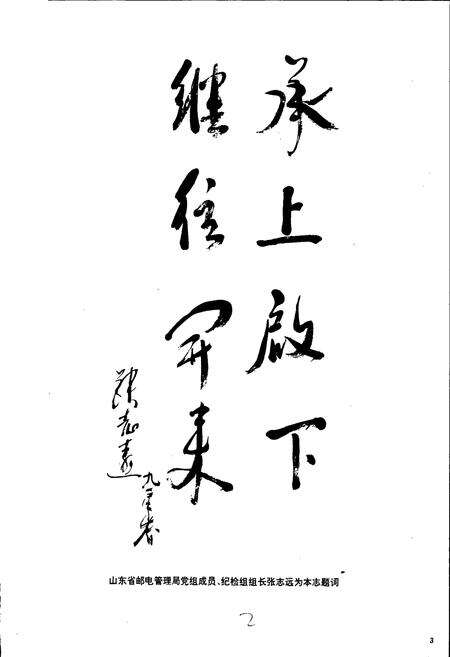 承上啟下
继往开来
张志远
九一年春
山东省邮电管理局党组成员、纪检组组长张志远为本志题词
2
3